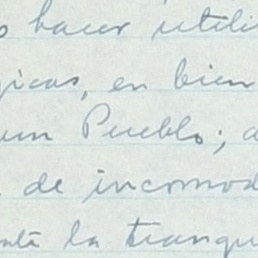 hacer utili
gicas, en bien
un Pueblo; a
de incomod
la tranqu